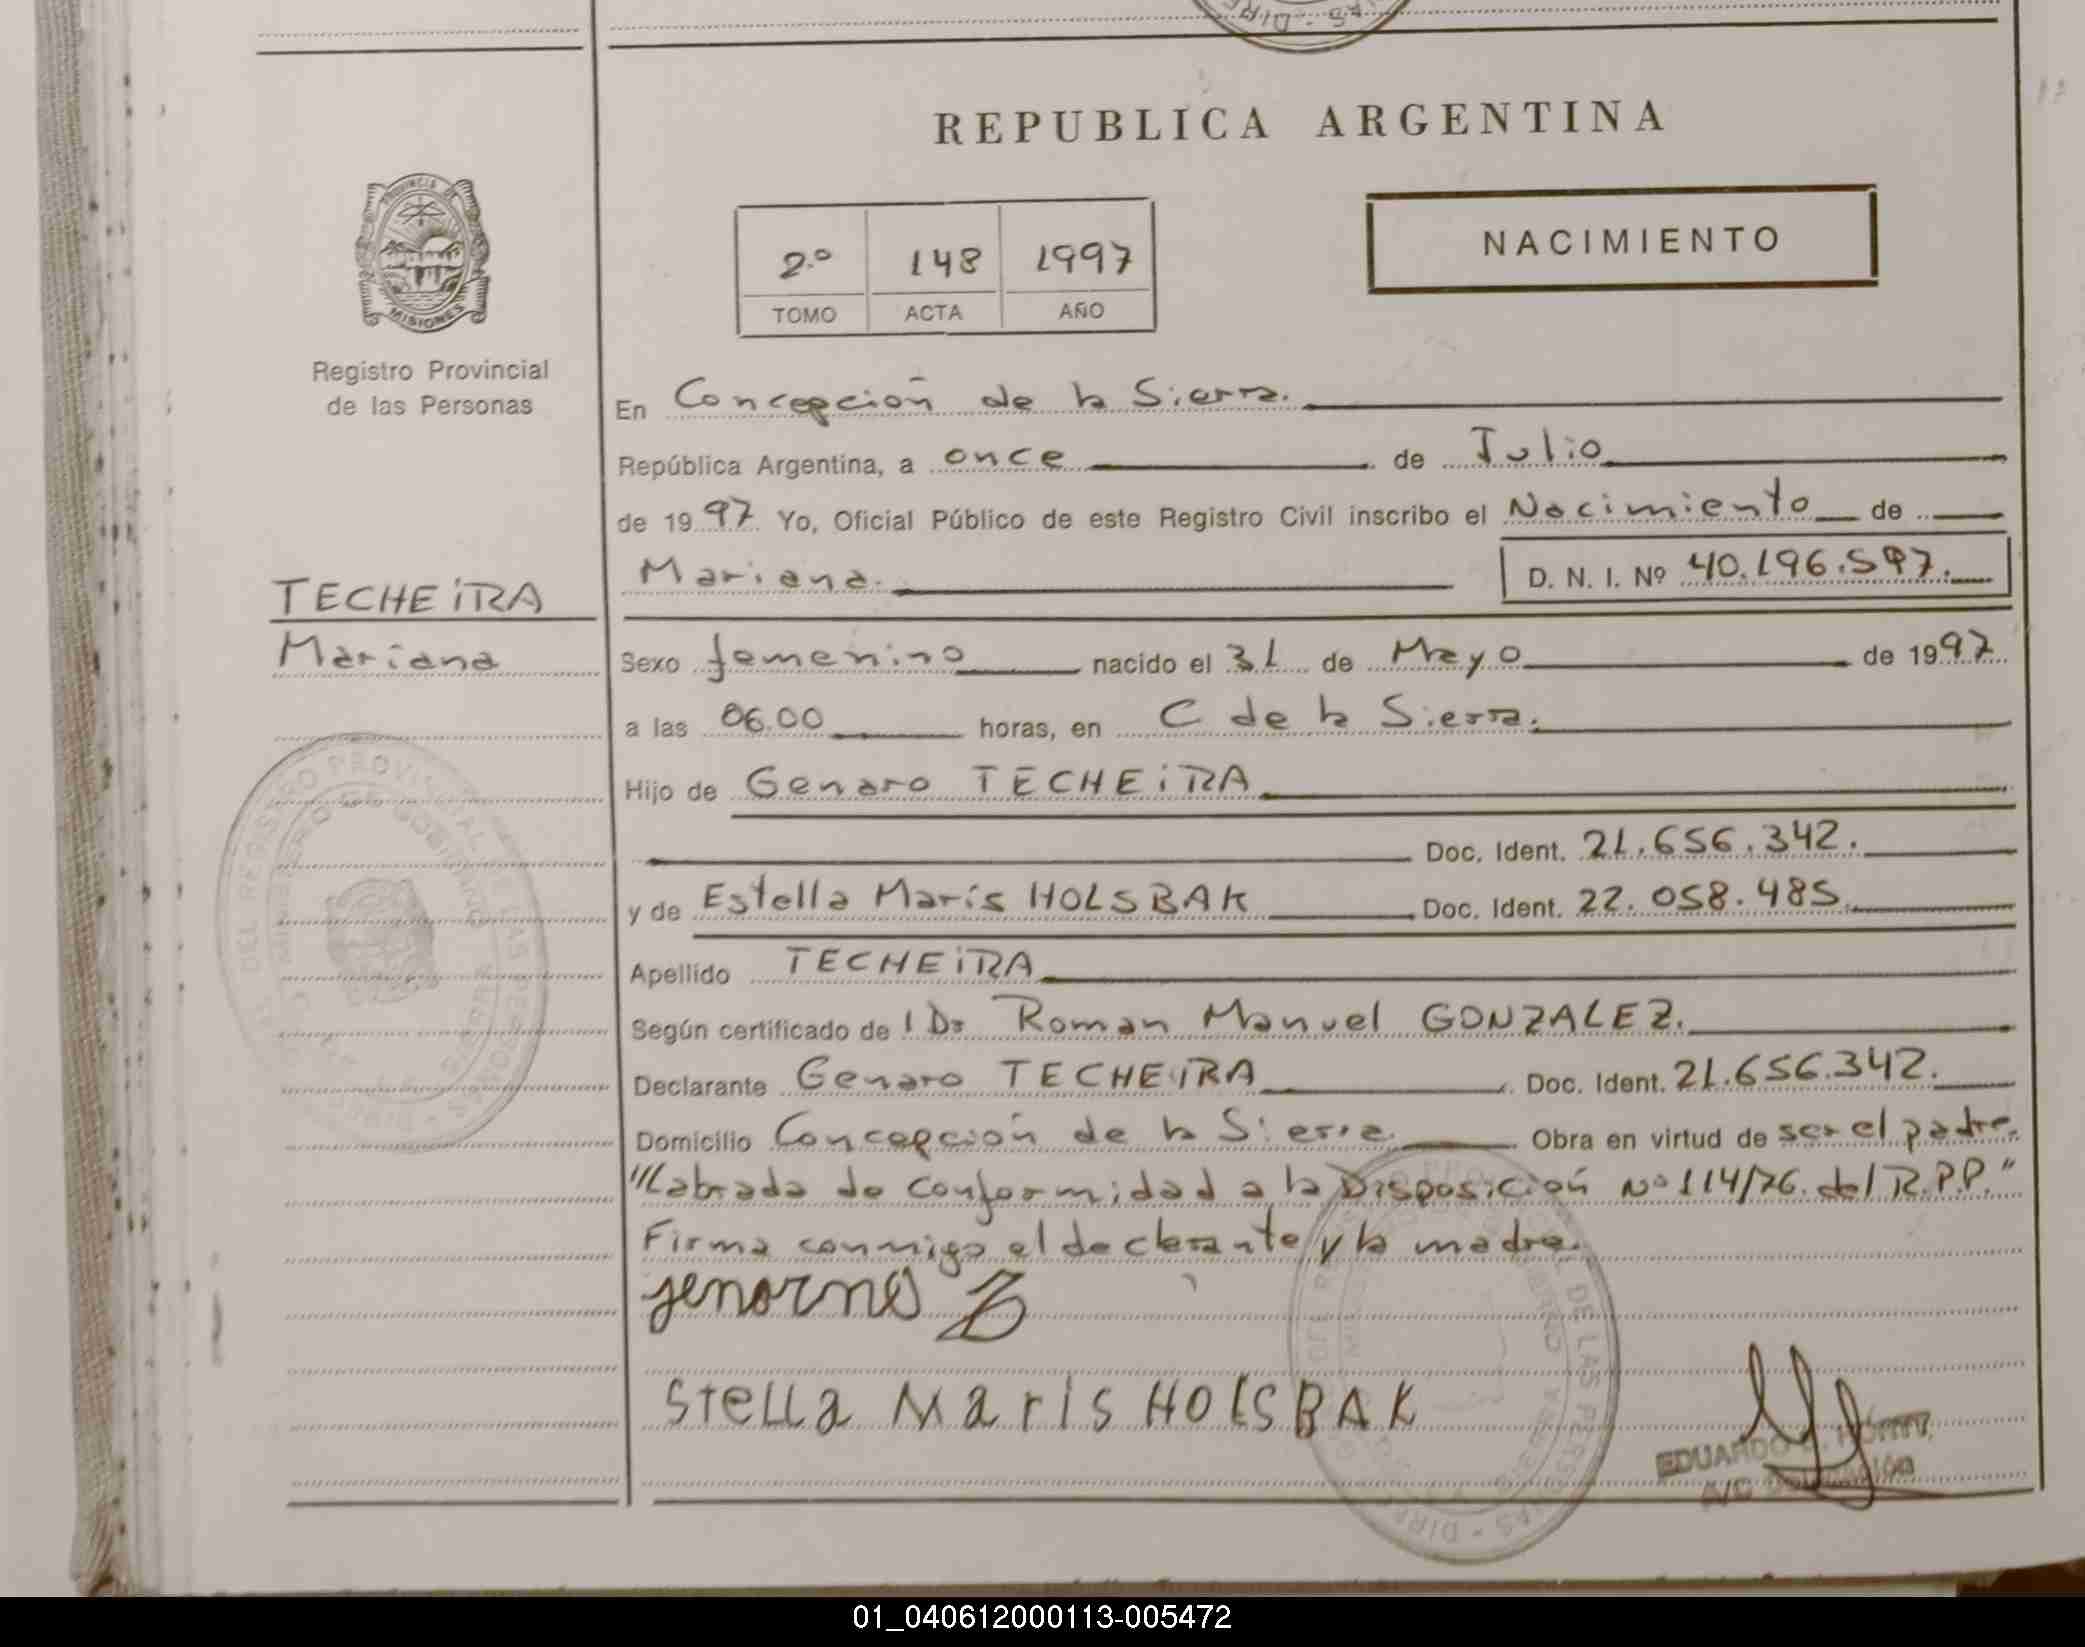 REPUBLICA ARGENTINA
PROVINCIA DE
MISIONES
Registro Provincial
de las Personas
2º 148 1997
TOMO ACTA AÑO
NACIMIENTO
En Concepción de la Sierra.
República Argentina, a once de Julio
de 1997 Yo, Oficial Público de este Registro Civil inscribo el Nacimiento de
Mariana. D. N. I. Nº 40.196.597.
TECHEiRA
Mariana
Sexo femenino nacido el 31 de Mayo de 1997
a las 06.00 horas, en C de la Sierra.
Hijo de Genaro TECHEiRA
Doc. Ident. 21.656.342.
y de Estella Maris HOLSBAK Doc. Ident. 22.058.485.
Apellido TECHEiRA
Según certificado de l Dr Roman Manuel GONZALEZ.
Declarante Genaro TECHEiRA Doc. Ident. 21.656.342.
Domicilio Concepción de la Sierra Obra en virtud de ser el padre.
"Labrada de conformidad a la Disposición Nº 114/76. del R.P.P."
Firma conmigo el declarante y la madre.
Stella Maris HOLSBAK
EDUARDO
A/C
01_040612000113-005472